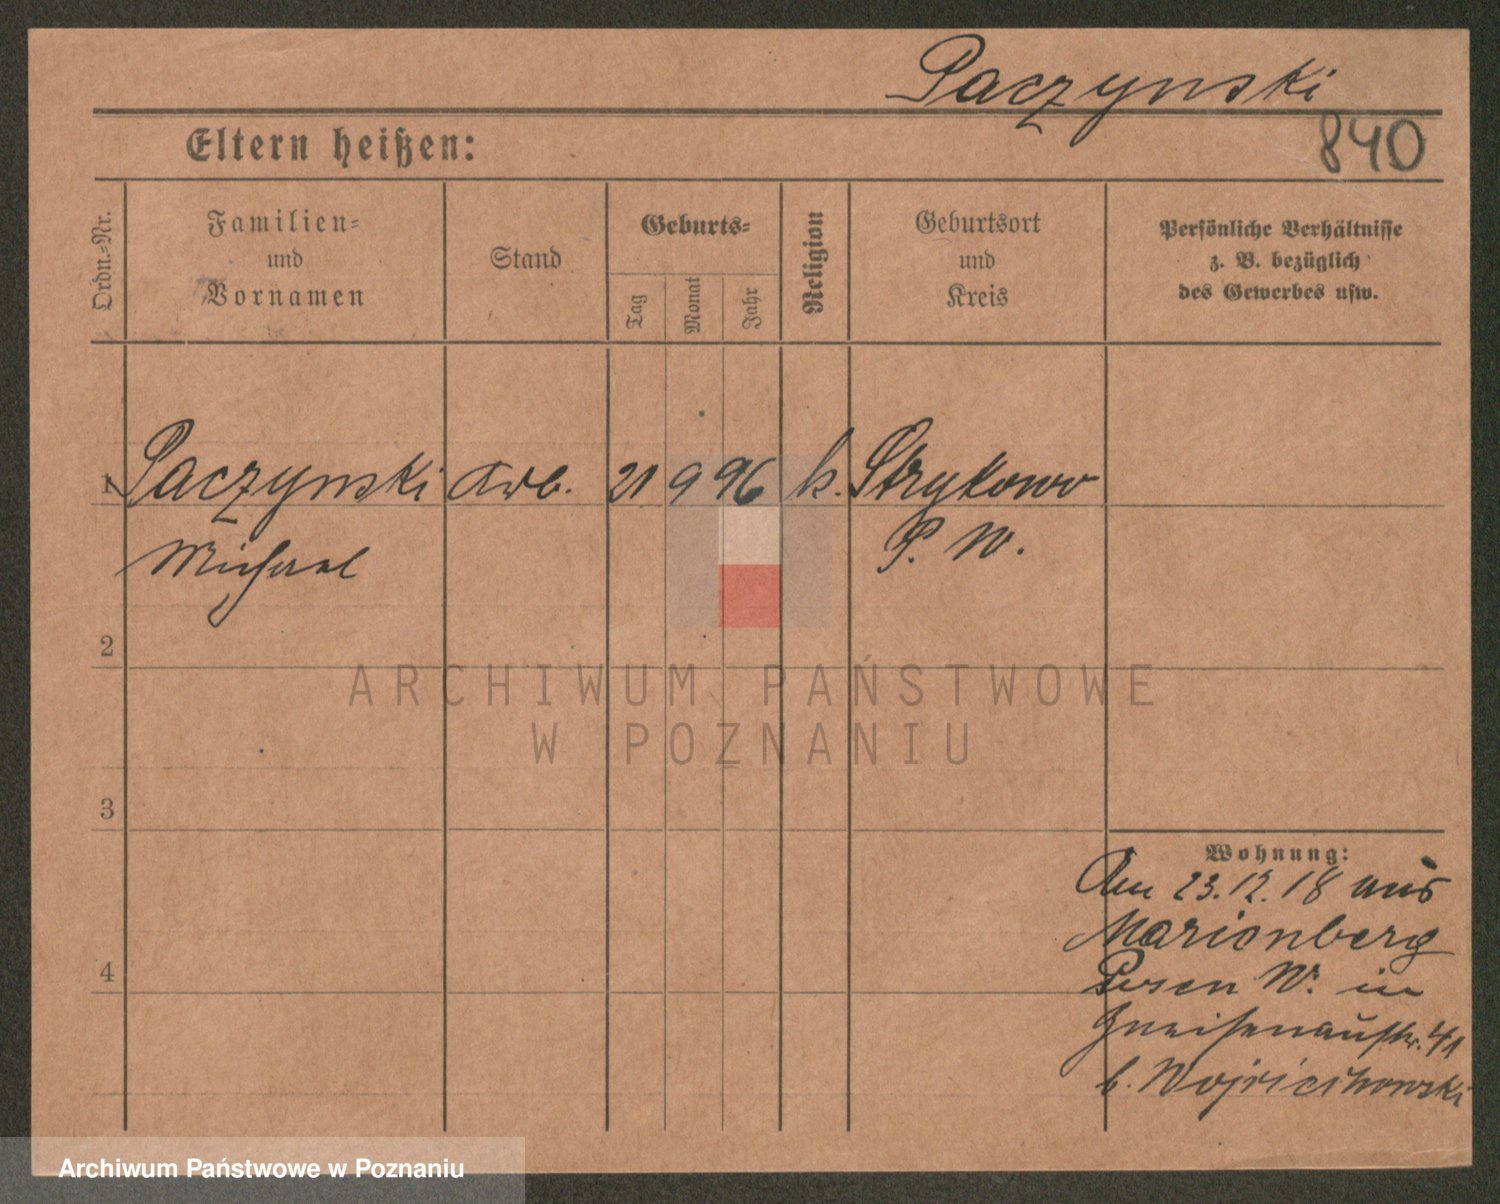 Paczynski
840
Eltern heißen:
Ordn.-Nr.
Familien-
und
Vornamen
Stand
Geburts-
Tag
Monat
Jahr
Religion
Geburtsort
und
Kreis
Persönliche Verhältnisse
z. B. bezüglich
des Gewerbes usw.
1 Paczynski Arb. 21 9 96 k. Strykowo
Michael P. W.
2
ARCHIWUM PAŃSTWOWE
W POZNANIU
3
Wohnung:
Am 23.12.18 aus
Marienberg
4
Posen W. in
Gneisenaustr. 41
b. Wojciechowski
Archiwum Państwowe w Poznaniu